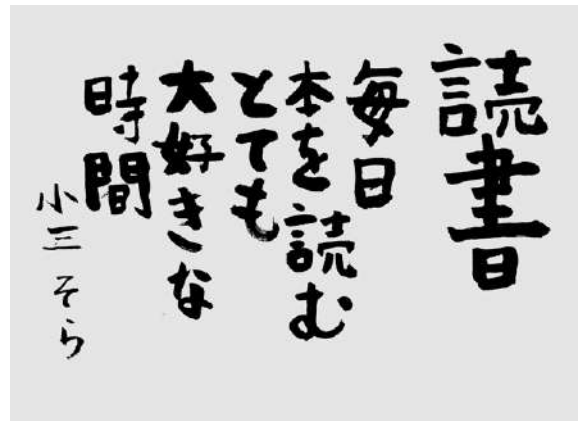 読書
毎日
本を読む
とても
大好きな
時間
小三 そら